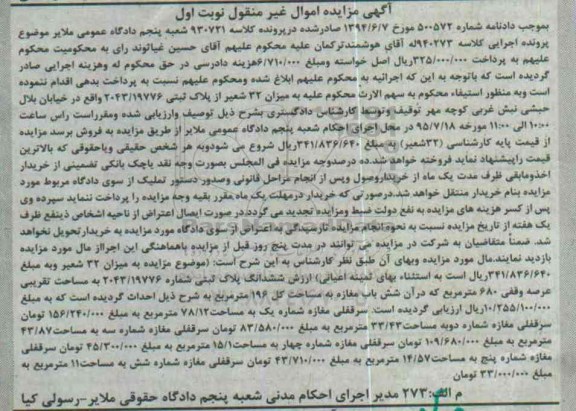 آگهی مزایده اموال غیر منقول نوبت اول
بموجب دادنامه شماره ۵۰۰۵۷۲ مورخ ۱۳۹۴/۶/۷ صادرشده درپرونده کلاسه ۹۳۰۷۲۱ شعبه پنجم دادگاه عمومی ملایر موضوع
پرونده اجرایی کلاسه ۹۴۰۲۷۳له آقای هوشمندترکمان علیه محکوم علیهم آقای حسین غیاثوند رای به محکومیت محکوم
علیهم به پرداخت ۳۲۵/۰۰۰/۰۰۰ریال اصل خواسته ومبلغ ۶/۷۱۰/۰۰۰هزینه دادرسی در حق محکوم له وهزینه اجرایی صادر
گردیده است که باتوجه به این که اجرائیه به محکوم علیهم ابلاغ شده ومحکوم علیهم نسبت به پرداخت بدهی اقدام ننموده
است وبه منظور استیفاء محکوم به سهم الارث محکوم علیه به میزان ۳۲ شعیر از پلاک ثبتی ۲۰۴۳/۱۹۷۷۶ واقع در خیابان بلال
حبشی نبش غربی کوچه مهر توقیف وتوسط کارشناس دادگستری بشرح ذیل توصیف وارزیابی شده ومقرراست راس ساعت
۱۰:۰۰الی ۱۱:۰۰ مورخه ۹۵/۷/۱۸ در محل اجرای احکام شعبه پنجم دادگاه عمومی ملایر از طریق مزایده به فروش برسد مزایده
از قیمت پایه کارشناسی (۳۲شعیر) به مبلغ ۳۴۱/۸۳۶/۶۴۰ریال شروع می شودوبه هر شخص حقیقی ویاحقوقی که بالاترین
قیمت راپیشنهاد نماید فروخته خواهد شد.ده درصدوجه مزایده فی المجلس بصورت وجه نقد یاچک بانکی تضمینی از خریدار
اخذومابقی ظرف مدت یک ماه از خریداروصول وپس از انجام مراحل قانونی وصدور دستور تملیک از سوی دادگاه مربوط مورد
مزایده بنام خریدار منتقل خواهد شد.درصورتی که خریدار درمهلت یک ماه مقرر بقیه وجه مزایده را پرداخت ننماید سپرده وی
پس از کسر هزینه های مزایده به نفع دولت ضبط ومزایده تجدید می گردد.در صورت ایصال اعتراض از ناحیه اشخاص ذینفع ظرف
یک هفته از تاریخ مزایده نسبت به نحوه انجام مزایده تارسیدگی به اعتراض از سوی دادگاه مورد مزایده به خریدارتحویل نخواهد
شد. ضمناً متقاضیان به شرکت در مزایده می توانند در مدت پنج روز قبل از مزایده باهماهنگی این اجرااز مال مورد مزایده
بازدید نمایند.مال مورد مزایده وبهای آن طبق نظر کارشناس به این شرح است: (موضوع مزایده به میزان ۳۲ شعیر وبه مبلغ
۳۴۱/۸۳۶/۶۴۰ریال است به استثناء بهای ثمینه اعیانی) ارزش ششدانگ پلاک ثبتی شماره ۲۰۴۳/۱۹۷۷۶ به مساحت تقریبی
عرصه وقفی ۶۸۰ مترمربع که درآن شش باب مغازه به مساحت کل ۱۹۶ مترمربع به شرح ذیل احداث گردیده است که به مبلغ
۱۰/۲۵۵/۱۰۰/۰۰۰ریال ارزیابی گردیده است. سرقفلی مغازه شماره یک به مساحت۷۸/۱۲ مترمربع به مبلغ ۱۵۶/۲۴۰/۰۰۰ تومان
سرقفلی مغازه شماره دوبه مساحت۳۳/۴۳ مترمربع به مبلغ ۸۳/۵۸۰/۰۰۰ تومان سرقفلی مغازه شماره سه به مساحت ۴۳/۸۷
مترمربع به مبلغ ۱۰۹/۶۸۰/۰۰۰ تومان سرقفلی مغازه شماره چهار به مساحت۱۵/۱ مترمربع به مبلغ ۴۵/۳۰۰/۰۰۰ تومان سرقفلی
مغازه شماره پنج به مساحت۱۴/۵۷ مترمربع به مبلغ ۴۳/۷۱۰/۰۰۰ تومان سرقفلی مغازه شماره شش به مساحت۱۱ مترمربع به
مبلغ ۳۳/۰۰۰/۰۰۰ تومان
م الف:۲۷۳ مدیر اجرای احکام مدنی شعبه پنجم دادگاه حقوقی ملایر-رسولی کیا